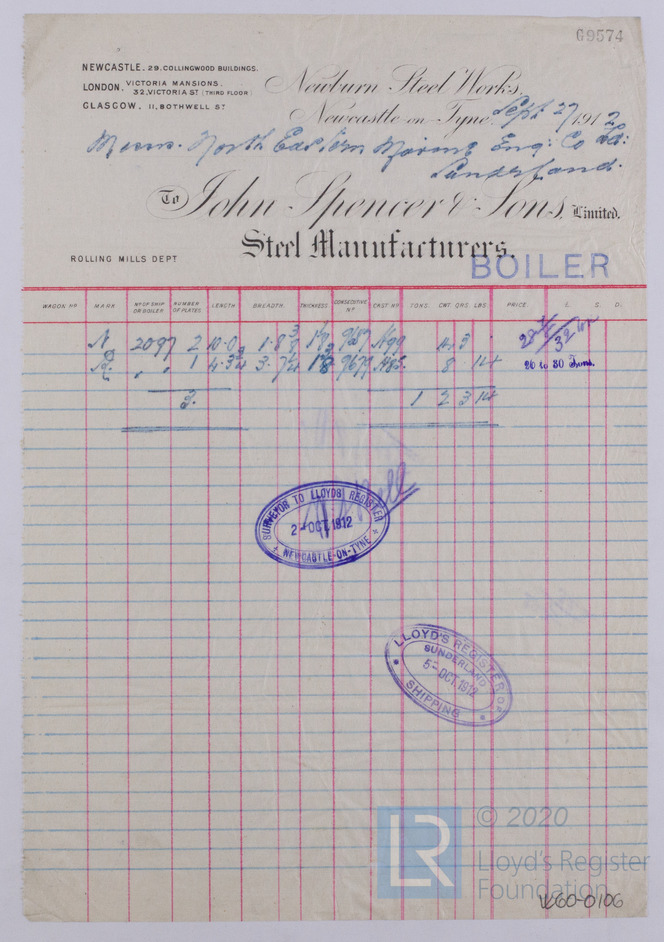 69574
NEWCASTLE. 29. COLLINGWOOD BUILDINGS.
LONDON. VICTORIA MANSIONS. 32, VICTORIA ST (THIRD FLOOR)
GLASCOW. 11, BOTHWELL ST
Newburn Steel Works,
Newcastle-on-Tyne, Sept 27 1912
Messrs. North Eastern Marine Eng: Co Ld:
Sunderland.
To John Spencer & Sons, Limited.
Steel Manufacturers.
ROLLING MILLS DEPT
BOILER
WAGON No MARK No OF SHIP OR BOILER NUMBER OF PLATES LENGTH BREADTH THICKNESS CONSECUTIVE No CAST No TONS. CWT QRS. LBS. PRICE. £. S. D.
N 2097 2 10.0 1.8 N99 3
" " 1 3.7 8 14
26 to 30 Tons.
3. 1 2 3 14
SURVEYOR TO LLOYDS REGISTER
2-OCT.1912
NEWCASTLE-ON-TYNE
LLOYD'S REGISTER OF
SUNDERLAND
5-OCT.1912
SHIPPING
LR
© 2020
Lloyd's Register
Foundation
W60-0106